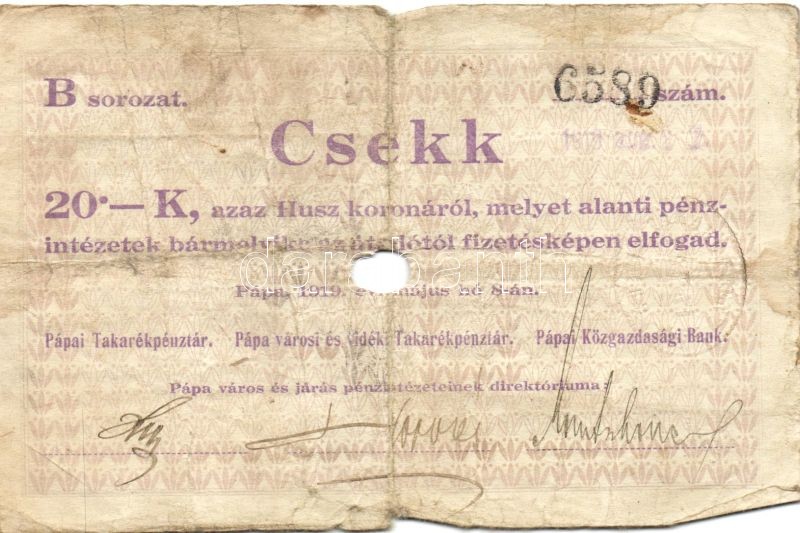 B sorozat. 6589 szám.
Csekk
20·— K, azaz Husz koronáról, melyet alanti pénz-
intézetek bármelyike az átadótól fizetésképen elfogad.
Pápa, 1919. évi május hó 8-án.
Pápai Takarékpénztár. Pápa városi és vidéki Takarékpénztár. Pápai Közgazdasági Bank.
Pápa város és járás pénzintézeteinek direktóriuma: